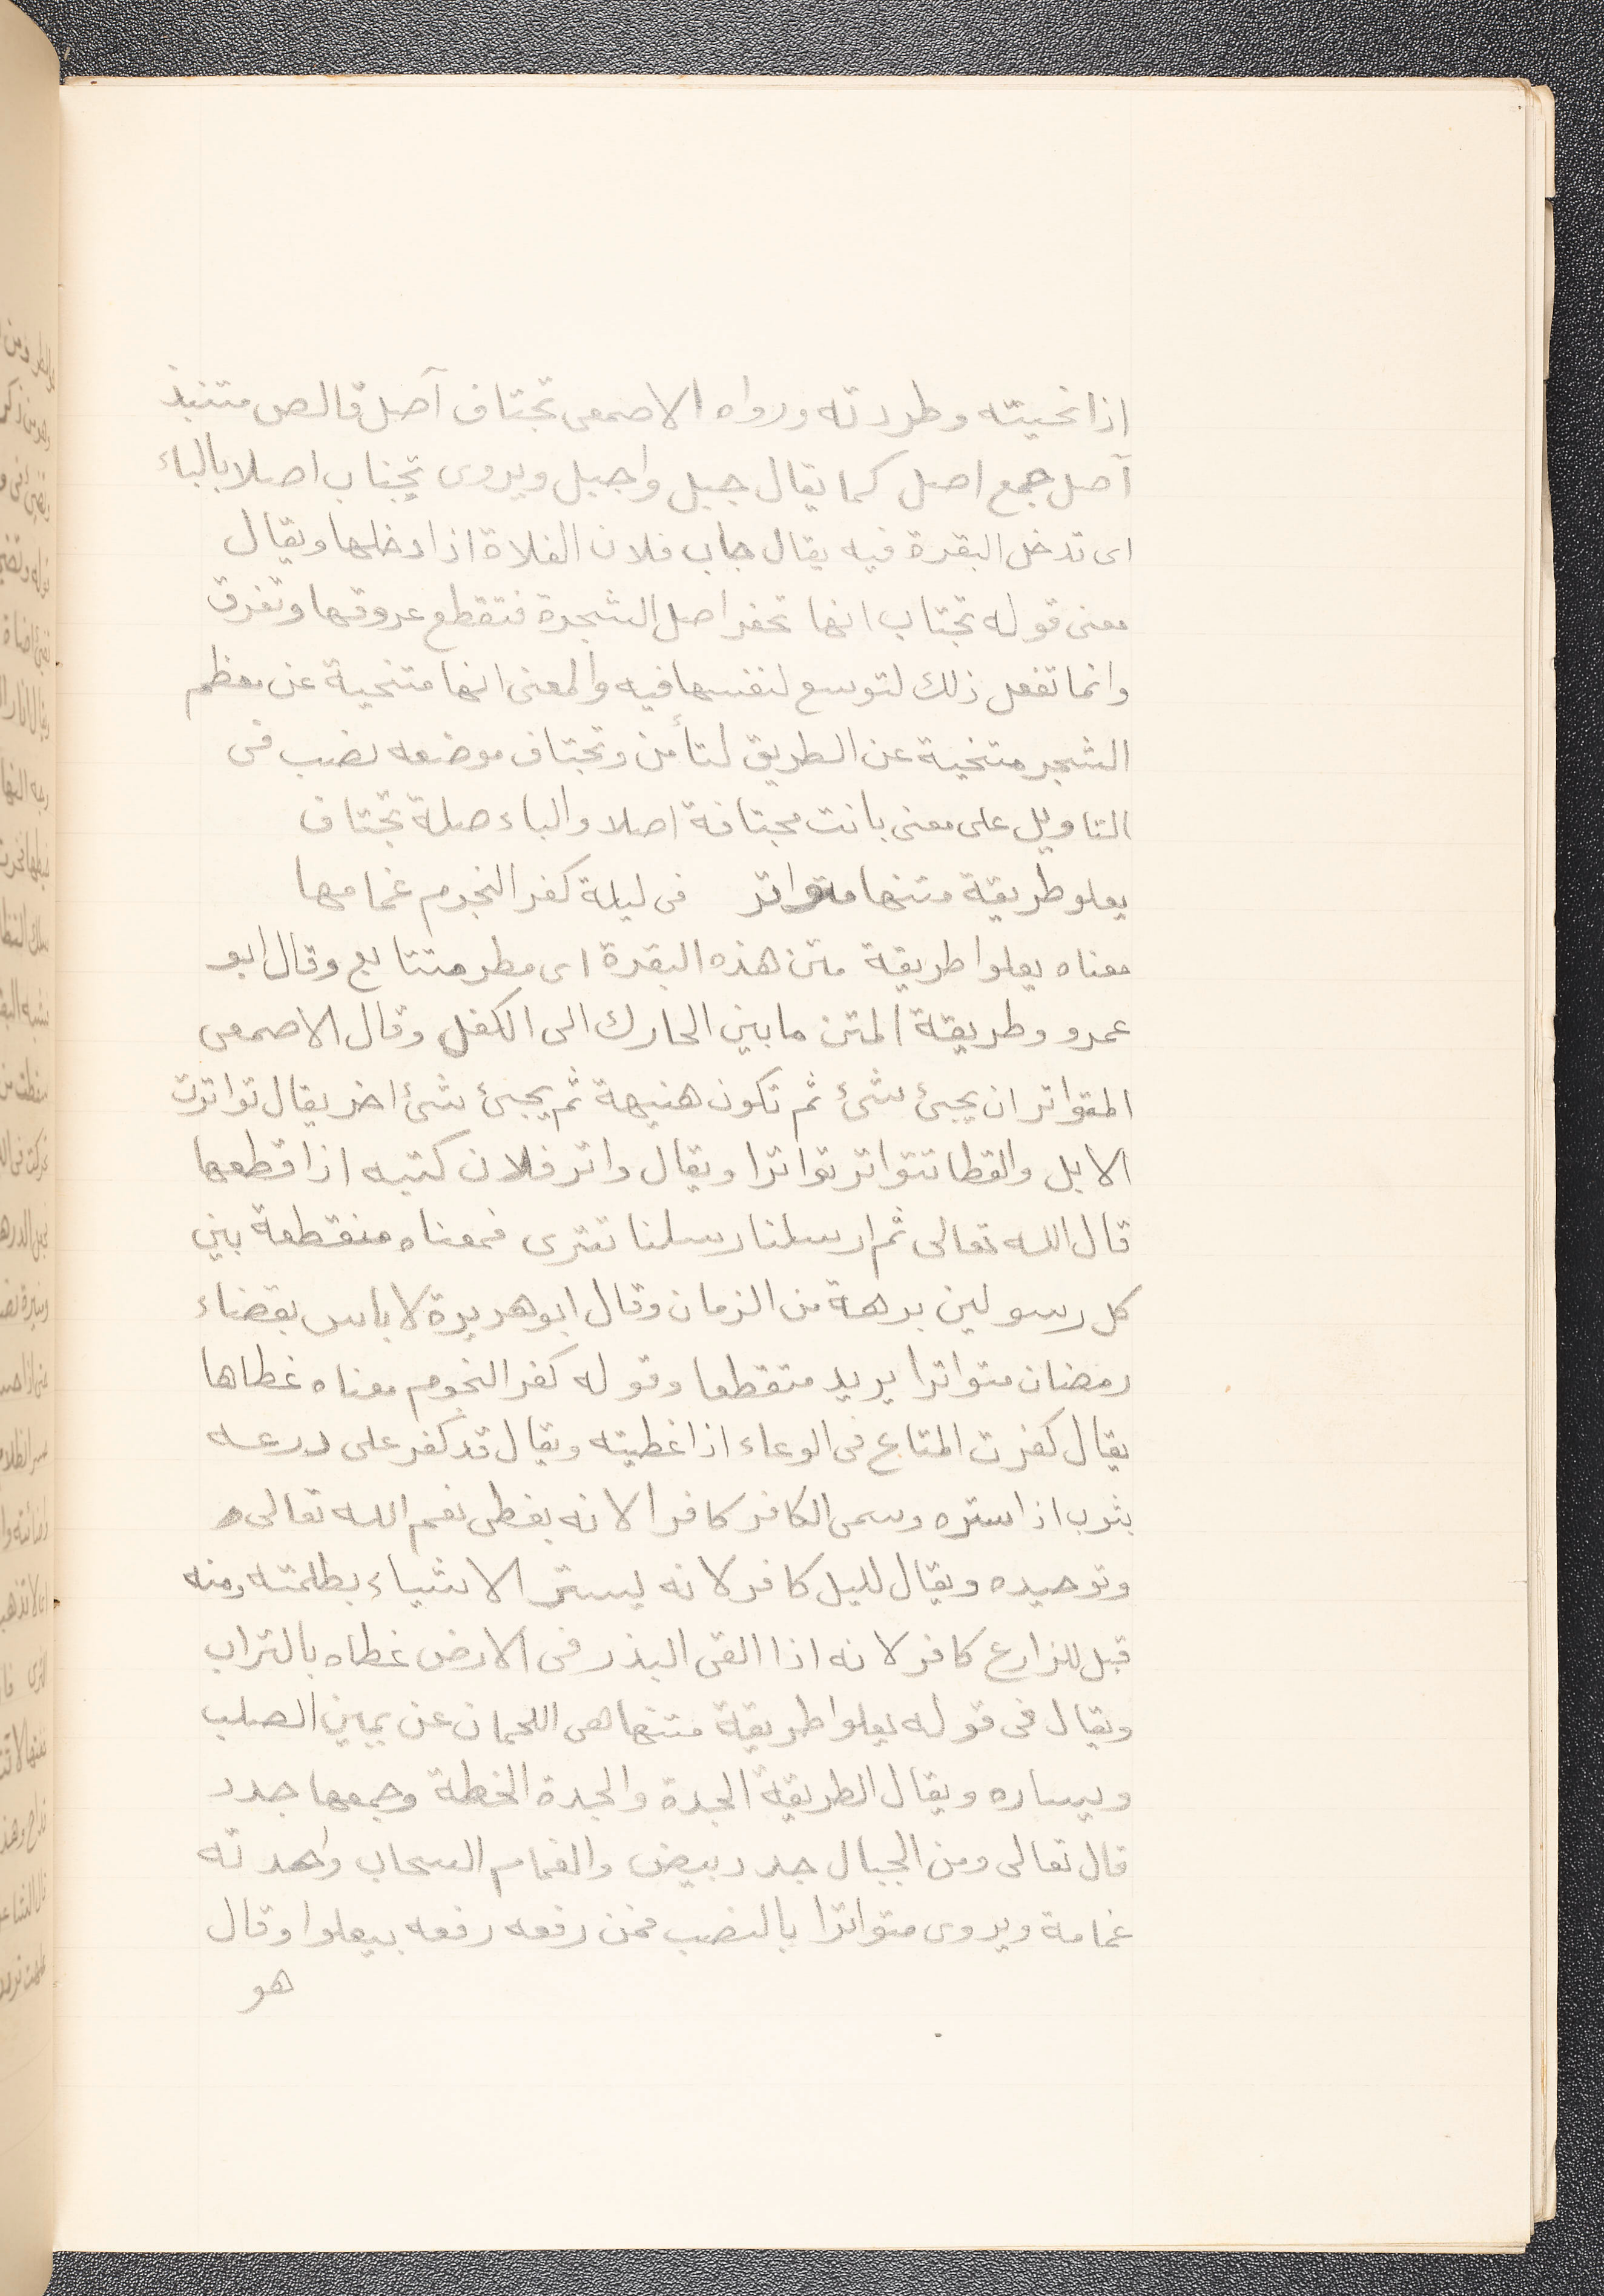 اذا نحيته وطردته ورواه الاصمعى تجتاف آصل قالص متنبذ
آصل جمع اصل كما يقال جبل واجبل ويروى تجتاب اصلا بالباء
اى تدخل البقرة فيه يقال جاب فلان الفلاة اذا دخلها ويقال
معنى قوله تجتاب انها تحفر اصل الشجرة فتقطع عروقها وتفرق
وانما تفعل ذلك لتوسع لنفسها فيه والمعنى انها متنحية عن معظم
الشجر متنحية عن الطريق لتأمن وتجتاف موضعه نصب فى
التاويل على معنى باتت مجتافة اصلا والباء صلة تجتاف
يعلو طريقة متنها متواتر فى ليلة كفر النجوم غمامها
معناه يعلوا طريقة متن هذه البقرة اى مطر متتابع وقال ابو
عمرو وطريقة المتن ما بين الحارك الى الكفل وقال الاصمعى
المتواتر ان يجئ شئ ثم تكون هنيهة ثم يجئ شئ اخر يقال تواترت
الابل والقطا تتواتر تواترا ويقال واتر فلان كتبه اذا قطعها
قال الله تعالى ثم ارسلنا رسلنا تترى فمعناه منقطعة بين
كل رسولين برهة من الزمان وقال ابو هريرة لا باس بقضاء
رمضان متواترا يريد متقطعا وقوله كفر النجوم معناه غطاها
يقال كفرت المتاع فى الوعاء اذا غطيته ويقال قد كفر على درعه
بثوب اذا ستره وسمى الكافر كافرا لانه يغطى نعم الله تعالى
وتوحيده ويقال لليل كافر لانه يستر الاشياء بظلمته ومنه
قيل للزارع كافر لانه اذا القى البذر فى الارض غطاه بالتراب
ويقال فى قوله يعلوا طريقة متنها هى اللحمان عن يمين الصلب
ويساره ويقال الطريقة الجدة والجدة الخطة وجمعها جدد
قال تعالى ومن الجبال جدد بيض والغمام السحاب واحدته
غمامة ويروى متواترا بالنصب فمن رفعه رفعه بيعلوا وقال
هو